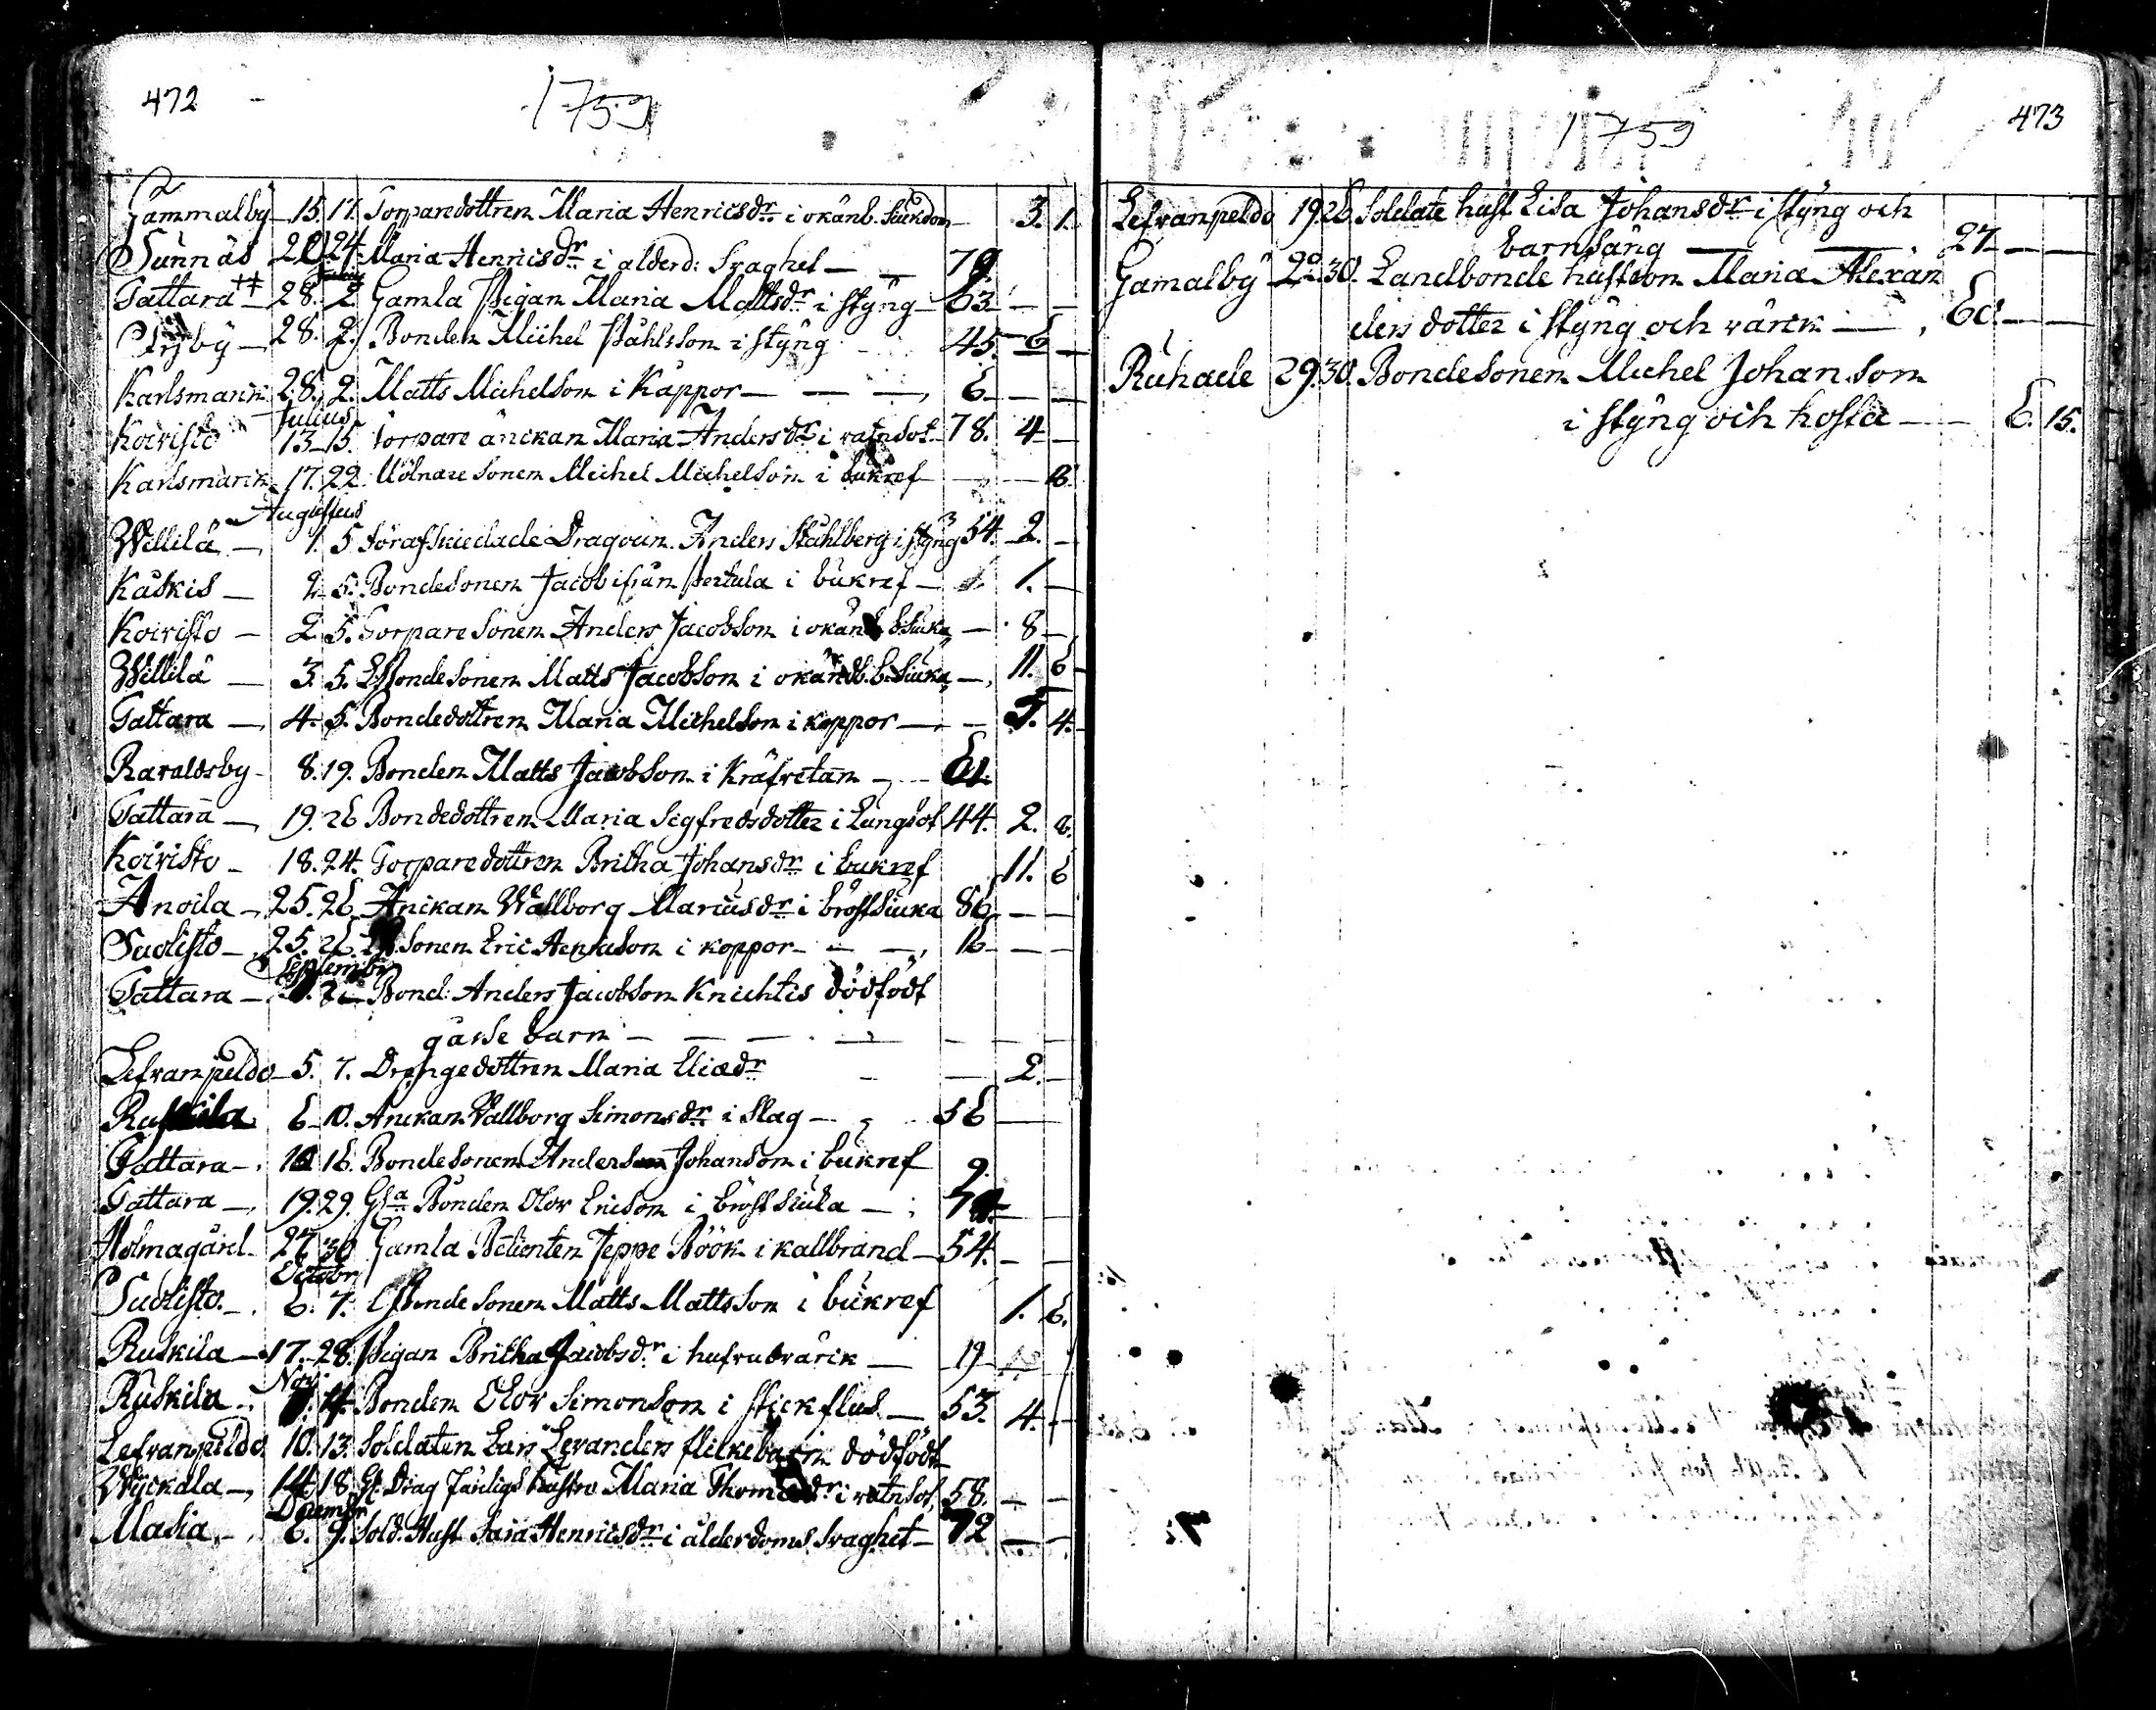 472
1759
Gammalby 15. 17. Torparedottren Maria Henricsdr i okänd. Siukdom 3. 1.
Sunnäs 20 24. Maria Henricsdr i alderd: Svaghet 79.
Tattara 28. 2 Gamla Pigan Maria Mattsdr i styng 63
28. 2. Bonden Michel Påhlsson i styng 45. 6
Karlsmark 28. 2. Matts Michelson i Kåppor 6
Julius
Koivisto 13. 15. Torpare änckan Maria Andersdr i vatnsot 78. 4
Karlsmark 17. 22. Mölnare sonen Michel Michelson i bukref 8.
Augustus
Willilä 1. 5 Förafskiedade Dragoun. Anders Ståhlberg i styng 54. 2.
Kaskis 2. 5. Bondesonen Jacob ifrån Pertula i bukref 1.
Koivisto 2. 5. Torpare Sonen Anders Jacobson i okänd b.siuka 8
Willilä 3. 5. Bondesonen Matts Jacobson i okändb. b. Siuka 11. 6
Tattara 4. 5. Bondedottren Maria Michelson i koppor 5. 4.
Haraldsby 8. 19. Bonden Matts Jacobson i Kräfvetan 61.
Tattara 19. 26 Bondedottren Maria Sigfredsdotter i Lungsot 44. 2. 8.
Koivisto 18. 24. Torparedottren Britha Johansdr i bukref 11. 6
Anoila 25. 26. Änckan Wallborg Marcusdr i bröstsiuka 86
Suolisto 25. 26 Sonen Eric Henricson i koppor 16
September
Tattara Bond: Anders Jacobson Knichtis dödfödt
gåsse barn
Lefvanpeldo 5. 7. Drengedottren Maria Eliædr 2.
6. 10. Änckan Vallborg Simonsdr i Slag 56
Tattara 16. Bondesonen Anders Johanson i bukref 9.
Tattara 19. 29. Gla Bonden Olov Ericson i bröstsiuka
Holmagård 27 30 Gamla Betienten Jeppe Böök i kallbrand 54.
Octobr
Suolisto 6. 7. Bonde Sonen Matts Mattsson i bukref 1. 6.
Ruskila 17. 28. Pigan Britha Jacobsdr i hufvudvärck 19
Nov
Ruskila 14. Bonden Olov Simonson i stickflus 53. 4.
Lefvanpeldo 10. 13. Soldaten Lars Levanders flickebarn dödfödt
Wyckala 14. 18. Drag Farligs hustro Maria Thomædr i vatnsot, 58.
Decembr
Masia 6. 9. Sold. Hust Caisa Henricsdr i ålderdoms svaghet 72
473
1759
Lefvanpeldo 19. 26. Soldate hust Lisa Johansdr i styng och
barnsäng 27
Gamalby 22. 30. Landbonde hustron Maria Alexan
ders dotter i styng och värck 60.
Ruhade 29. 30. Bondesonen Michel Johanson
i styng och hosta 6. 15.